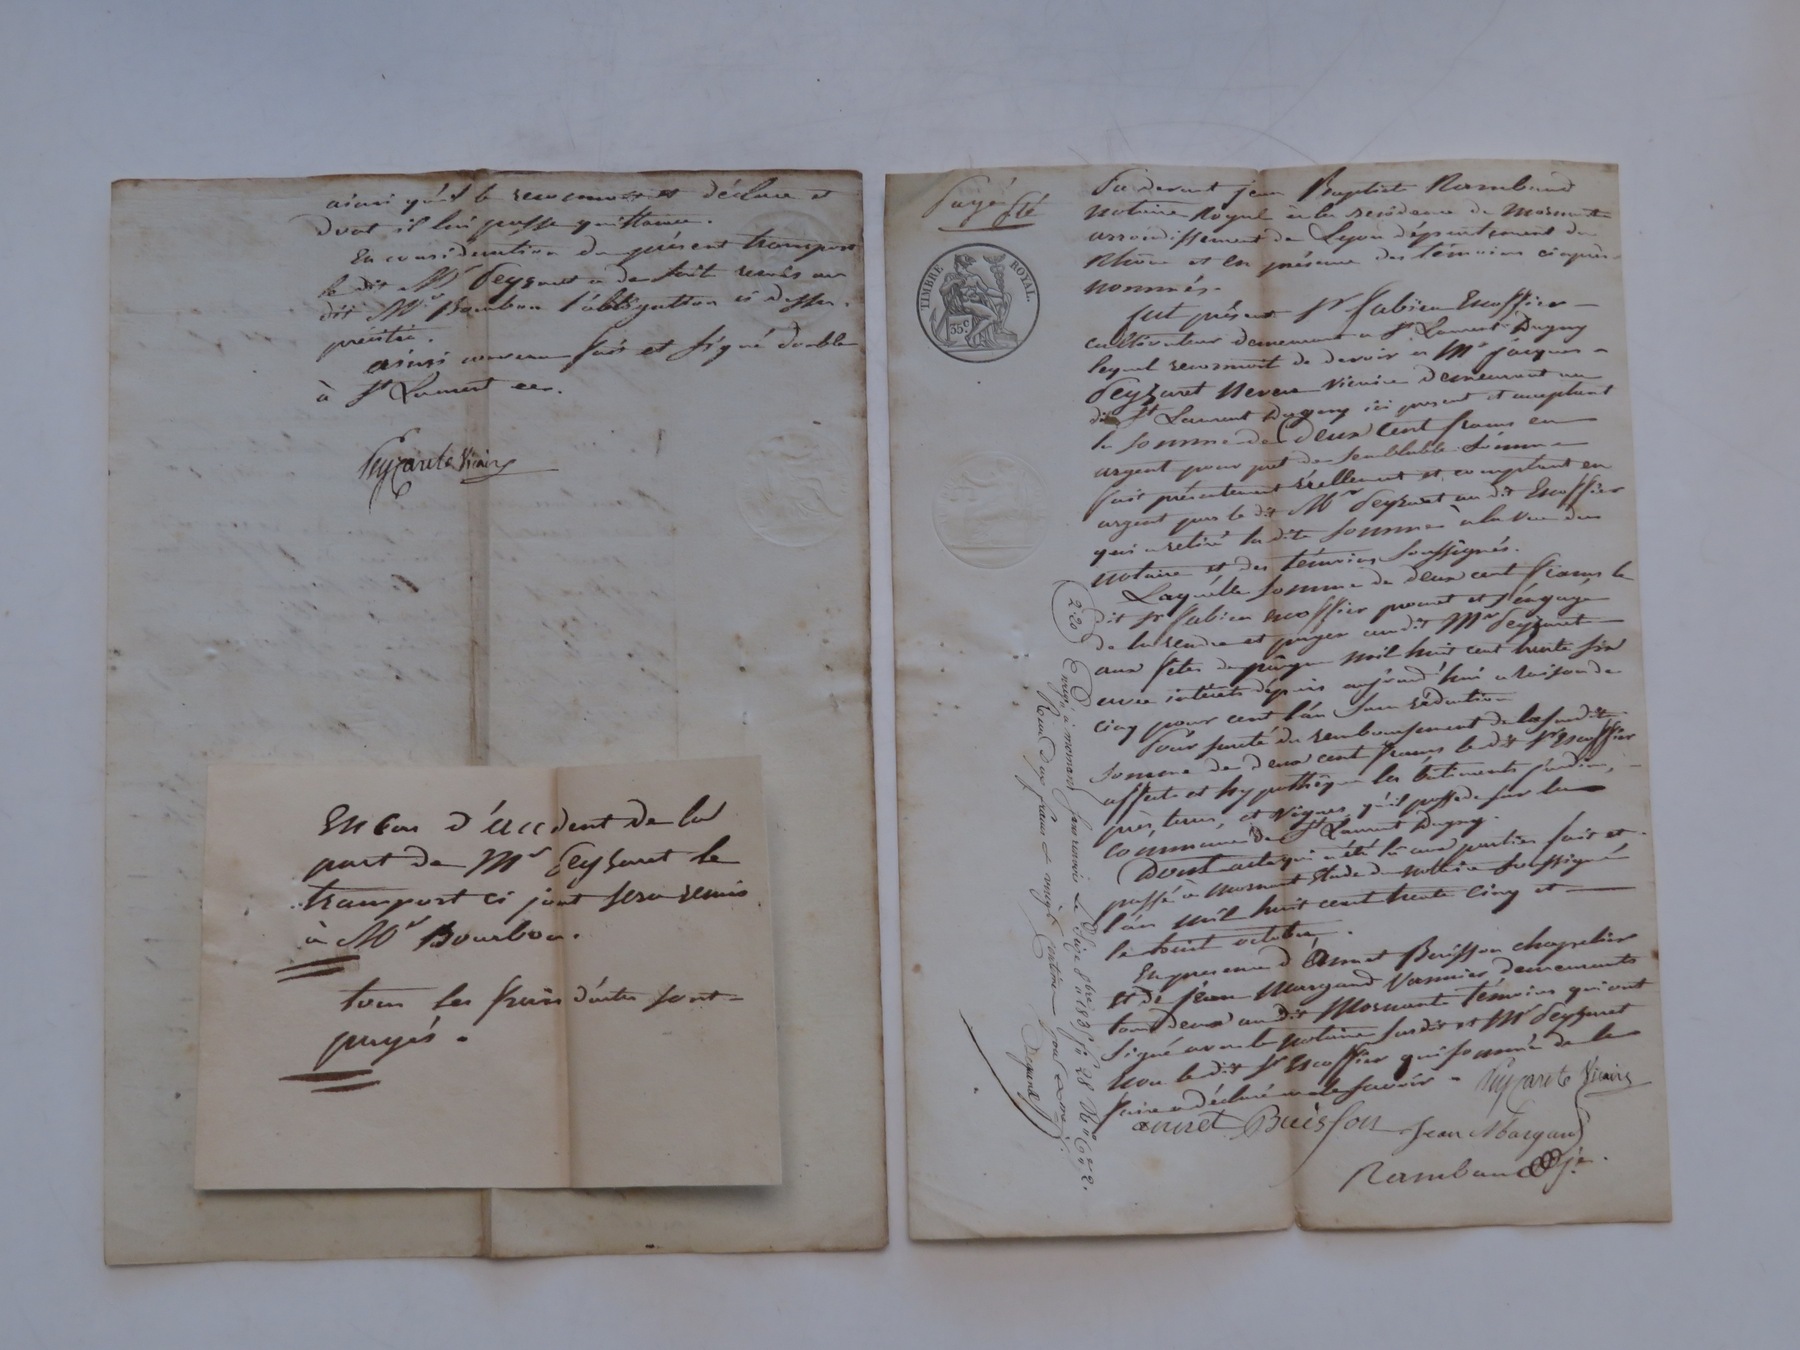 ainsi qu'il le reconnait et déclare et
dont il lui passe quittance.
En considération du présent transport
le dit Mr Peyzaret a de suite remis au
dit Mr Bourbon l'obligation ci dessus
précitée.
ainsi convenu fait et signé double
à St Laurent ce
Peyzaret Vicaire
En Cas d'accident de la
part de Mr Peyzaret le
transport ci joint sera remis
à Mr Bourbon.
tous les frais d'acte sont
payés.
Payé
TIMBRE ROYAL.
35c
Pardevant jean Baptiste Rambaud
notaire Royal à la residence de Mornant
arrondissement de Lyon département du
Rhône et en présence des témoins ciaprès
nommés.
fut présent Sr fabien Escoffier
cultivateur demeurant a St Laurent Dagny
lequel reconnait de devoir a Mr jacques
Peyzaret Vicaire demeurant au
dit St Laurent Dagny ici present et acceptant
la Somme de deux Cent francs en
argent pour pret de semblable Somme
fait présentement réellement et comptant en
argent par le dit Mr Peyzaret au dit Escoffier
qui a retiré la dite Somme à la vue du
notaire et des témoins Soussignés.
Laquelle Somme de deux cent francs le
dit Sr fabien escoffier promet et s'engage
de la rendre et payer au dit Mr Peyzaret
aux fêtes de pâques mil huit cent trente six
avec intérêts depuis aujourd'hui a raison de
cinq pour cent l'an Sans réduction
Pour sureté du remboursement de la susdite
Somme de deux cent francs le dit Sr escoffier
affecte et hypothèque les bâtiments jardin,
prés, terres, et vignes qu'il possede sur la
commune de St Laurent Dagny.
Dont acte qui a été lu aux parties fait et
passé a Mornant Etude du notaire Soussigné
l'an mil huit cent trente cinq et
le huit octobre.
En presence d'Annet Buisson chapelier
et de jean Margand Vannier demeurants
tous deux au dit Mornant témoins qui ont
Signé avec le notaire Susdit et Mr Peyzaret
non le dit Sr Escoffier qui sommé de le
faire a déclaré ne le Savoir.
Peyzaret Vicaire
annet Buisson
Jean Margand
Rambaud
2.20
Enrgé à mornant Sans renvoi Le Seize 8bre 1835 fo 28
Reçu deux francs & vingt centimes pour